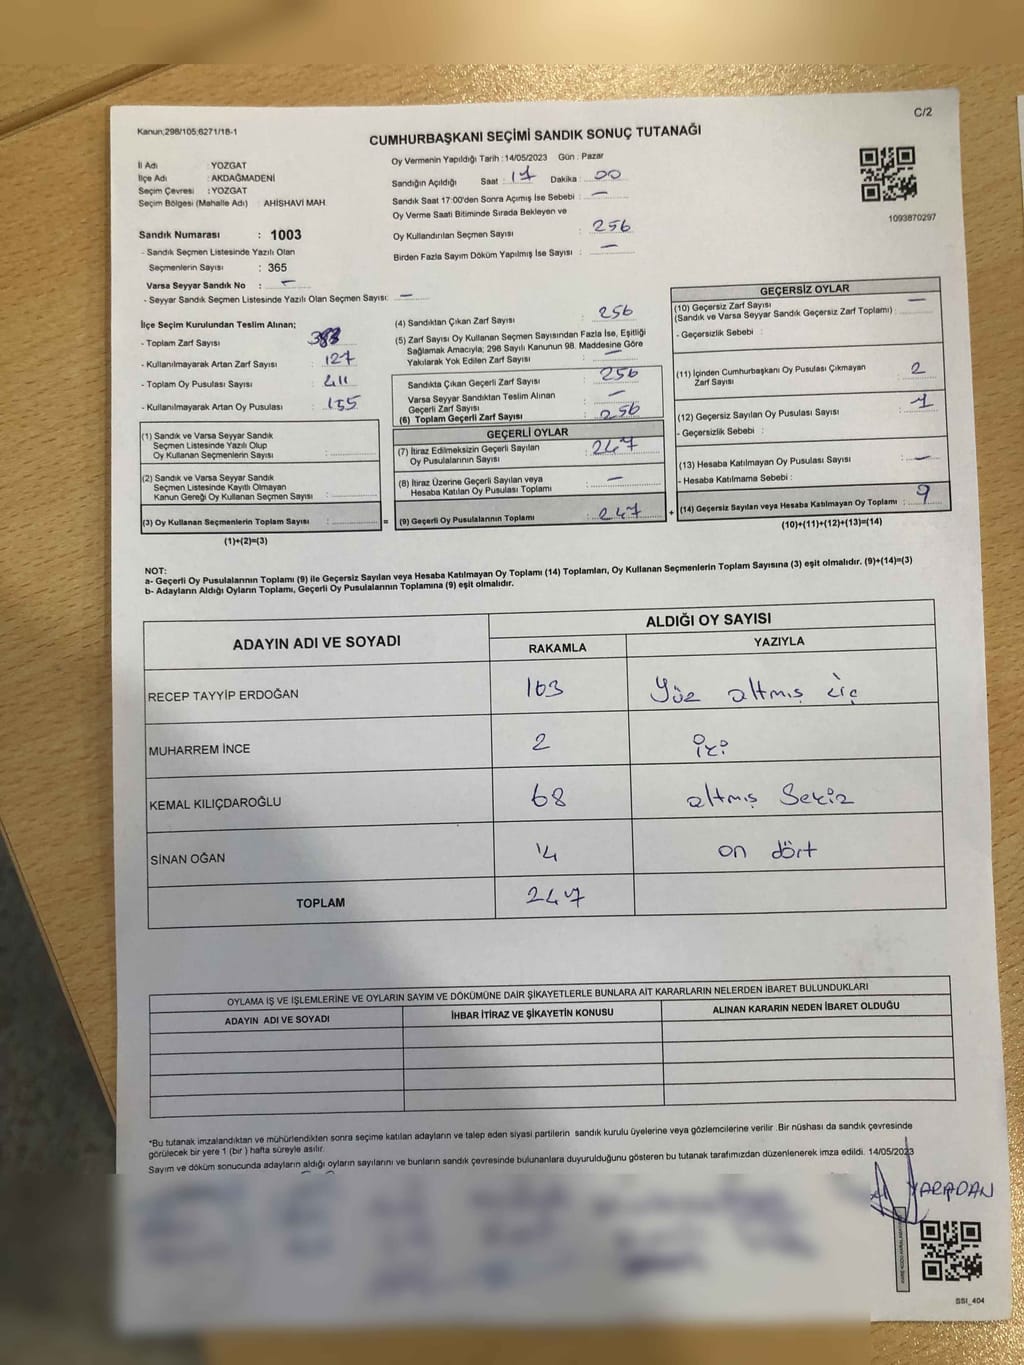 C/2
Kanun;298/105;6271/18-1
CUMHURBAŞKANI SEÇİMİ SANDIK SONUÇ TUTANAĞI
İl Adı : YOZGAT
İlçe Adı : AKDAĞMADENİ
Seçim Çevresi : YOZGAT
Seçim Bölgesi (Mahalle Adı) : AHİSHAVİ MAH.
Sandık Numarası : 1003
- Sandık Seçmen Listesinde Yazılı Olan
Seçmenlerin Sayısı : 365
Varsa Seyyar Sandık No : —
- Seyyar Sandık Seçmen Listesinde Yazılı Olan Seçmen Sayısı: —
Oy Vermenin Yapıldığı Tarih : 14/05/2023 Gün : Pazar
Sandığın Açıldığı Saat : 17 Dakika : 00
Sandık Saat 17:00'den Sonra Açımış İse Sebebi : —
Oy Verme Saati Bitiminde Sırada Bekleyen ve
Oy Kullandırılan Seçmen Sayısı : 256
Birden Fazla Sayım Döküm Yapılmış İse Sayısı : —
1093870297
İlçe Seçim Kurulundan Teslim Alınan;
- Toplam Zarf Sayısı :
- Kullanılmayarak Artan Zarf Sayısı : 127
- Toplam Oy Pusulası Sayısı : 411
- Kullanılmayarak Artan Oy Pusulası : 155
(1) Sandık ve Varsa Seyyar Sandık
Seçmen Listesinde Yazılı Olup
Oy Kullanan Seçmenlerin Sayısı :
(2) Sandık ve Varsa Seyyar Sandık
Seçmen Listesinde Kayıtlı Olmayan
Kanun Gereği Oy Kullanan Seçmen Sayısı :
(3) Oy Kullanan Seçmenlerin Toplam Sayısı :
(1)+(2)=(3)
(4) Sandıktan Çıkan Zarf Sayısı : 256
(5) Zarf Sayısı Oy Kullanan Seçmen Sayısından Fazla İse, Eşitliği
Sağlamak Amacıyla; 298 Sayılı Kanunun 98. Maddesine Göre
Yakılarak Yok Edilen Zarf Sayısı : —
Sandıkta Çıkan Geçerli Zarf Sayısı : 256
Varsa Seyyar Sandıktan Teslim Alınan
Geçerli Zarf Sayısı : —
(6) Toplam Geçerli Zarf Sayısı : 256
GEÇERLİ OYLAR
(7) İtiraz Edilmeksizin Geçerli Sayılan
Oy Pusulalarının Sayısı : 247
(8) İtiraz Üzerine Geçerli Sayılan veya
Hesaba Katılan Oy Pusulası Toplamı : —
= (9) Geçerli Oy Pusulalarının Toplamı : 247
GEÇERSİZ OYLAR
(10) Geçersiz Zarf Sayısı
(Sandık ve Varsa Seyyar Sandık Geçersiz Zarf Toplamı) : —
- Geçersizlik Sebebi :
(11) İçinden Cumhurbaşkanı Oy Pusulası Çıkmayan
Zarf Sayısı : 2
(12) Geçersiz Sayılan Oy Pusulası Sayısı : 7
- Geçersizlik Sebebi :
(13) Hesaba Katılmayan Oy Pusulası Sayısı : —
- Hesaba Katılmama Sebebi :
+ (14) Geçersiz Sayılan veya Hesaba Katılmayan Oy Toplamı : 9
(10)+(11)+(12)+(13)=(14)
NOT:
a- Geçerli Oy Pusulalarının Toplamı (9) ile Geçersiz Sayılan veya Hesaba Katılmayan Oy Toplamı (14) Toplamları, Oy Kullanan Seçmenlerin Toplam Sayısına (3) eşit olmalıdır. (9)+(14)=(3)
b- Adayların Aldığı Oyların Toplamı, Geçerli Oy Pusulalarının Toplamına (9) eşit olmalıdır.
ADAYIN ADI VE SOYADI
ALDIĞI OY SAYISI
RAKAMLA YAZIYLA
RECEP TAYYİP ERDOĞAN 163 Yüz altmış üç
MUHARREM İNCE 2 iki
KEMAL KILIÇDAROĞLU 68 altmış Sekiz
SİNAN OĞAN 14 on dört
TOPLAM 247
OYLAMA İŞ VE İŞLEMLERİNE VE OYLARIN SAYIM VE DÖKÜMÜNE DAİR ŞİKAYETLERLE BUNLARA AİT KARARLARIN NELERDEN İBARET BULUNDUKLARI
ADAYIN ADI VE SOYADI İHBAR İTİRAZ VE ŞİKAYETİN KONUSU ALINAN KARARIN NEDEN İBARET OLDUĞU
*Bu tutanak imzalandıktan ve mühürlendikten sonra seçime katılan adayların ve talep eden siyasi partilerin sandık kurulu üyelerine veya gözlemcilerine verilir .Bir nüshası da sandık çevresinde
görülecek bir yere 1 (bir ) hafta süreyle asılır.
Sayım ve döküm sonucunda adayların aldığı oyların sayılarını ve bunların sandık çevresinde bulunanlara duyurulduğunu gösteren bu tutanak tarafımızdan düzenlenerek imza edildi. 14/05/2023
YARADAN
SSI_404